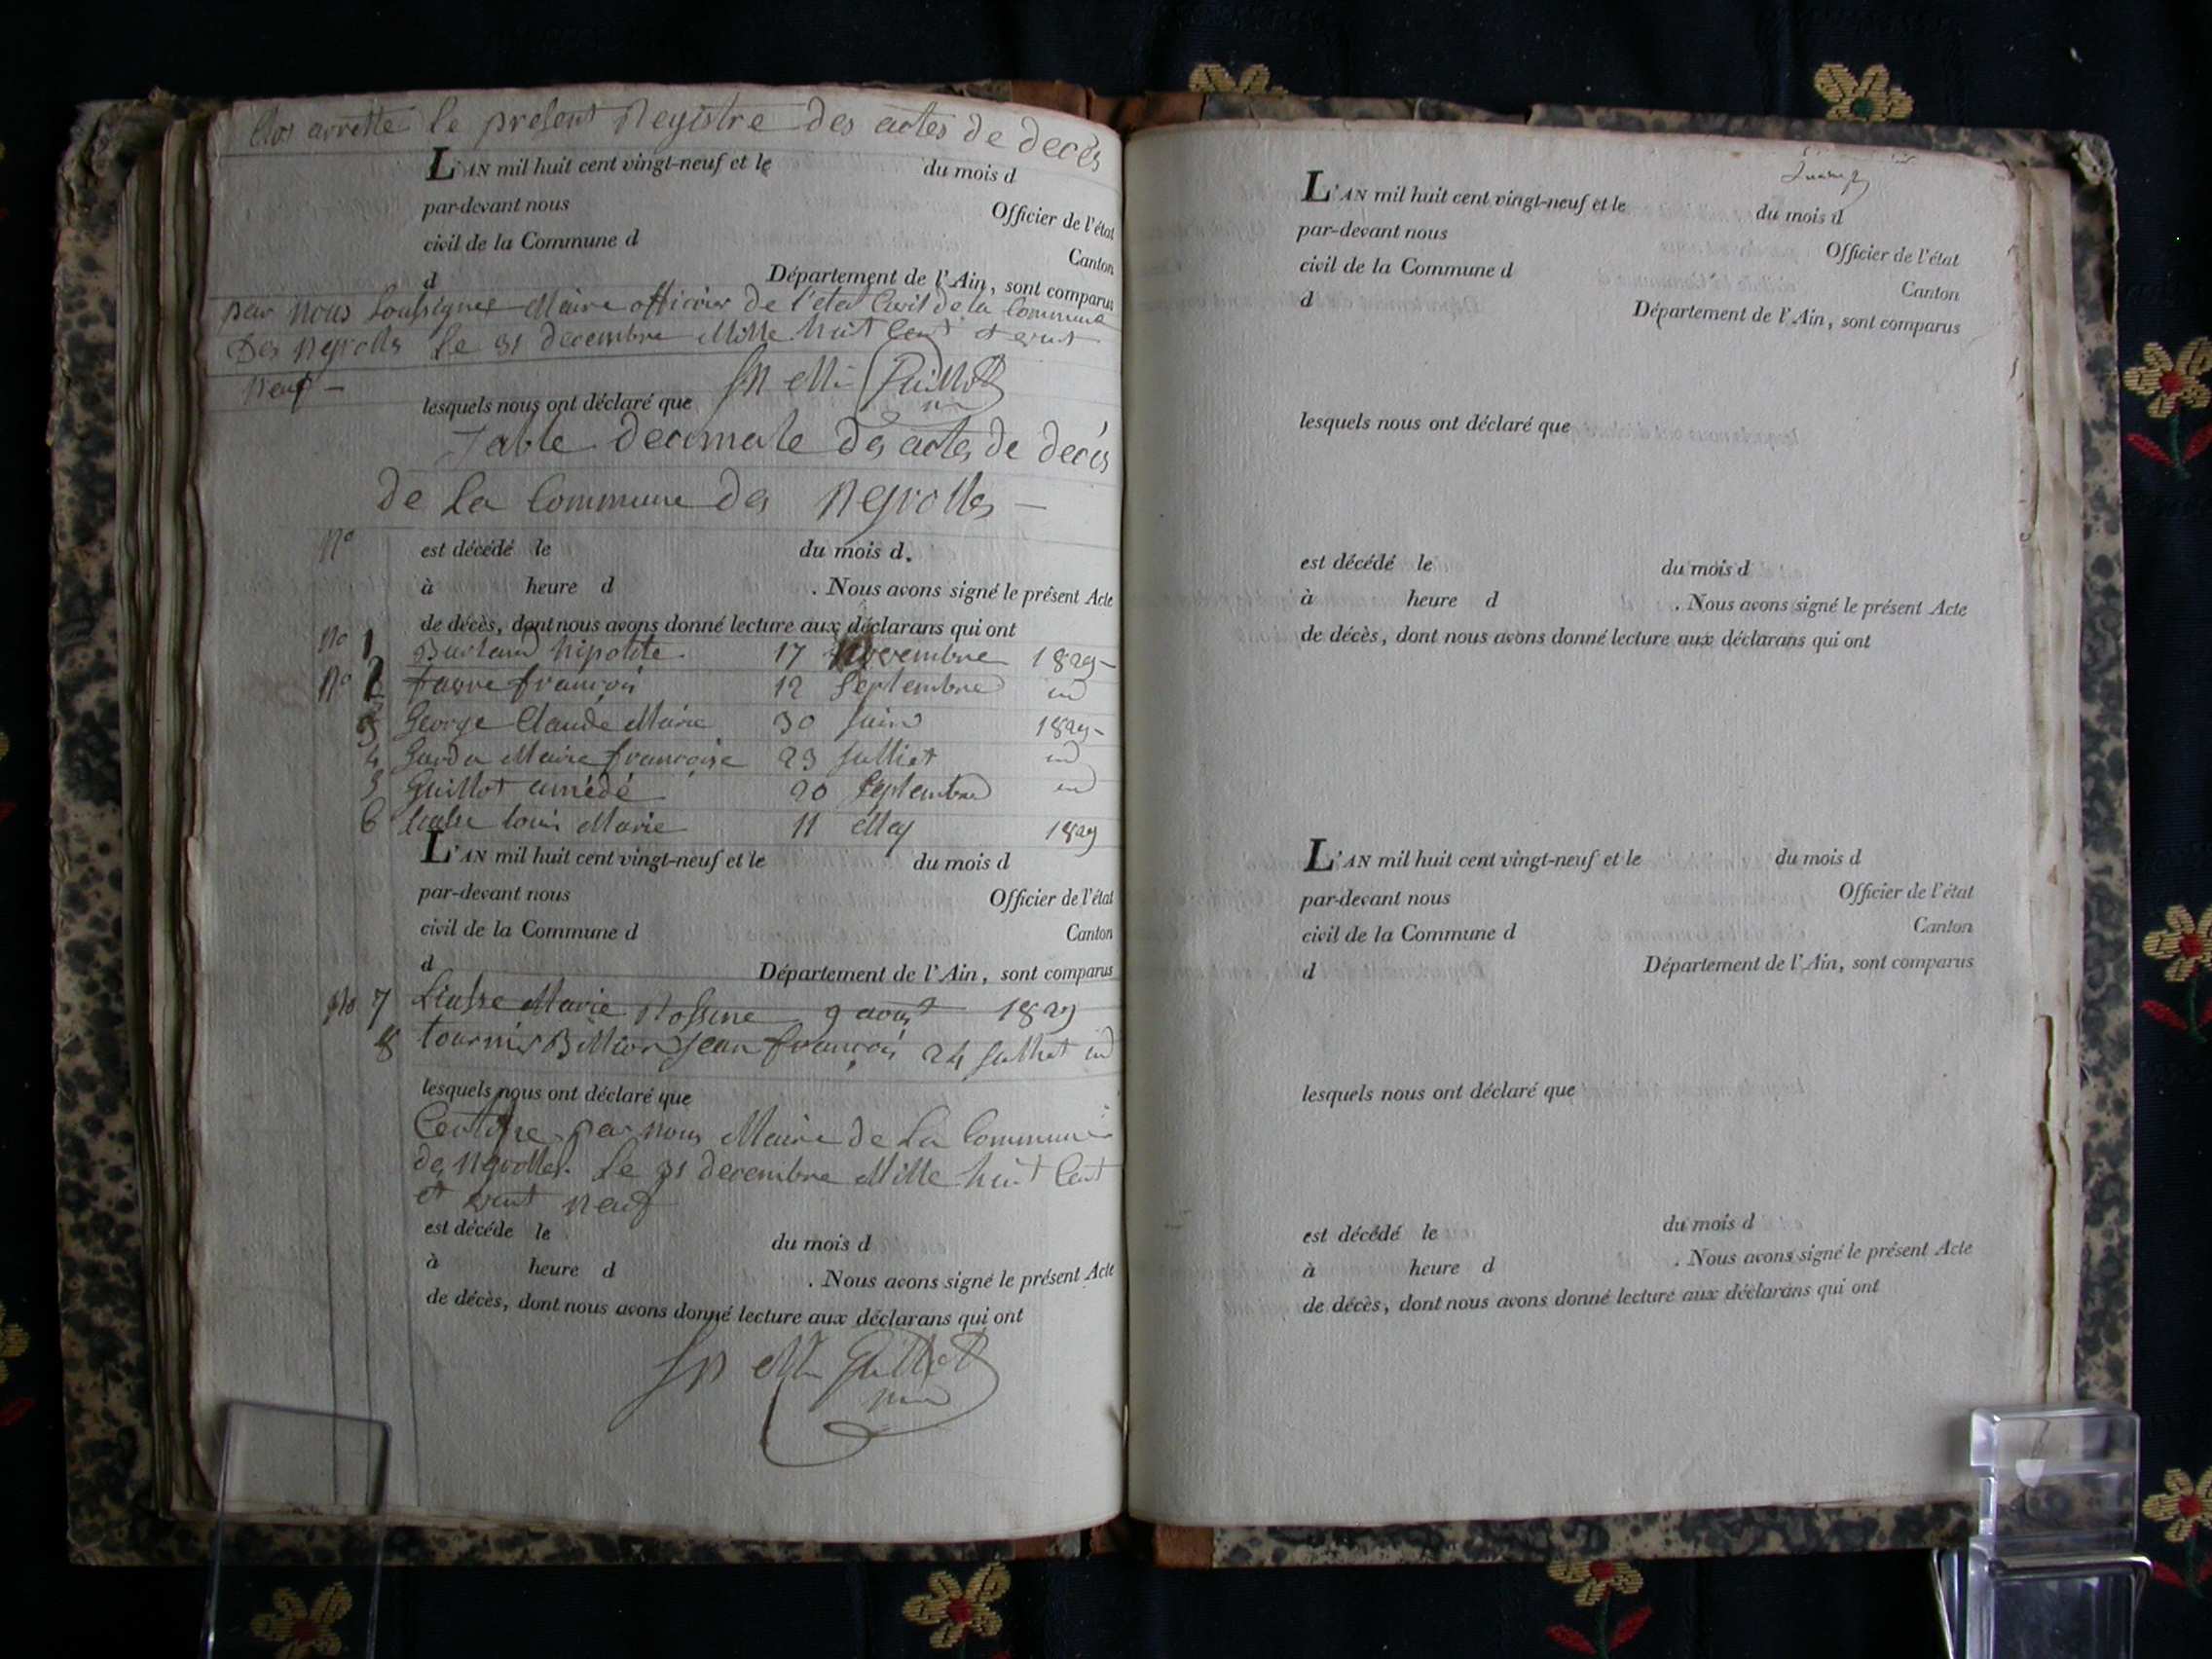 Clos arretté le present Registre des actes de deces
L'AN mil huit cent vingt-neuf et le du mois d
par-devant nous Officier de l'état
civil de la Commune d Canton
d Département de l'Ain, sont comparus
par nous soussigner Maire officier de l'etat Civil de la Commune
Des Neyrolles le 31 decembre Mille huit Cent et vint
neuf —
lesquels nous ont déclaré que Guillot
Table decimale des actes de deces
de La Commune des Neyrolles —
No est décédé le du mois d.
à heure d . Nous avons signé le présent Acte
de décès, dont nous avons donné lecture aux déclarans qui ont
No 1 hipolite 17 Novembre 1829-
No 2 favre françois 12 Septembre id
3 George Claude Marie 30 Juin 1829-
4 Marie françoise 23 Julliet id
5 Guillot amédé 20 Septembre id
6 louis Marie 11 May 1829
L'AN mil huit cent vingt-neuf et le du mois d
par-devant nous Officier de l'état
civil de la Commune d Canton
d Département de l'Ain, sont comparus
No 7 Liasse Marie Rossine 9 aout 1829
8 tournier Billion Jean françois 24 Julliet id
lesquels nous ont déclaré que
Certifie par nous Maire de La Commune
des Neyrolles. Le 31 decembre Mille huit Cent
et vint neuf
est décédé le du mois d
à heure d . Nous avons signé le présent Acte
de décès, dont nous avons donné lecture aux déclarans qui ont
Guillot
L'AN mil huit cent vingt-neuf et le du mois d
par-devant nous Officier de l'état
civil de la Commune d Canton
d Département de l'Ain, sont comparus
lesquels nous ont déclaré que
est décédé le du mois d
à heure d . Nous avons signé le présent Acte
de décès, dont nous avons donné lecture aux déclarans qui ont
L'AN mil huit cent vingt-neuf et le du mois d
par-devant nous Officier de l'état
civil de la Commune d Canton
d Département de l'Ain, sont comparus
lesquels nous ont déclaré que
est décédé le du mois d
à heure d . Nous avons signé le présent Acte
de décès, dont nous avons donné lecture aux déclarans qui ont